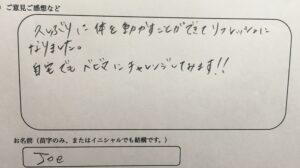 ご意見ご感想など
久しぶりに体を動かすことができてリフレッシュに
なりました。
自宅でもベビマにチャレンジしてみます!!
お名前（苗字のみ、またはイニシャルでも結構です。）
Joe